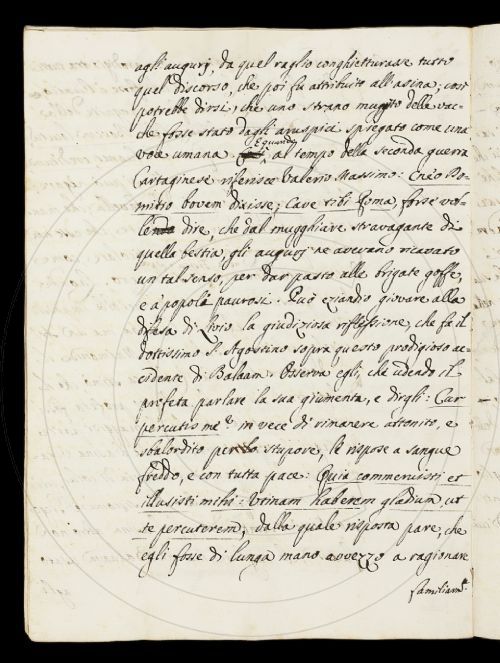 agli augurj, da quel raglio conghietturasse tutto
quel discorso, che poi fu attribuito all'asina; così
potrebbe dirsi, che uno strano mugito delle vac-
che fosse stato dagli aruspici spiegato come una
voce umana. E quando
al tempo della seconda guerra
Cartaginese riferisce Valerio Massimo: Cnéo Do-
mitio bovem dixisse; Cave tibi Roma, forse vol-
le dire, che dal mugghiare stravagante di
quella bestia, gli augurj ne avevano ricavato
un tal senso, per dar pasto alle brigate goffe,
e a' popoli paurosi. Può eziandio giovare alla
difesa di Livio la giudiziosa riflessione, che fa il
dottissimo S. Agostino sopra questo prodigioso ac-
cidente di Balaam. Osserva egli, che udendo il
profeta parlare la sua giumenta, e dirgli: Cur
percutis me? in vece di rimanere attonito, e
sbalordito per lo stupore, le rispose a sangue
freddo, e con tutta pace: Quia commeruisti et
illusisti mihi: Utinam haberem gladium, ut
te percuterem; dalla quale risposta pare, che
egli fosse di lunga mano avvezzo a ragionare
familiarm.e